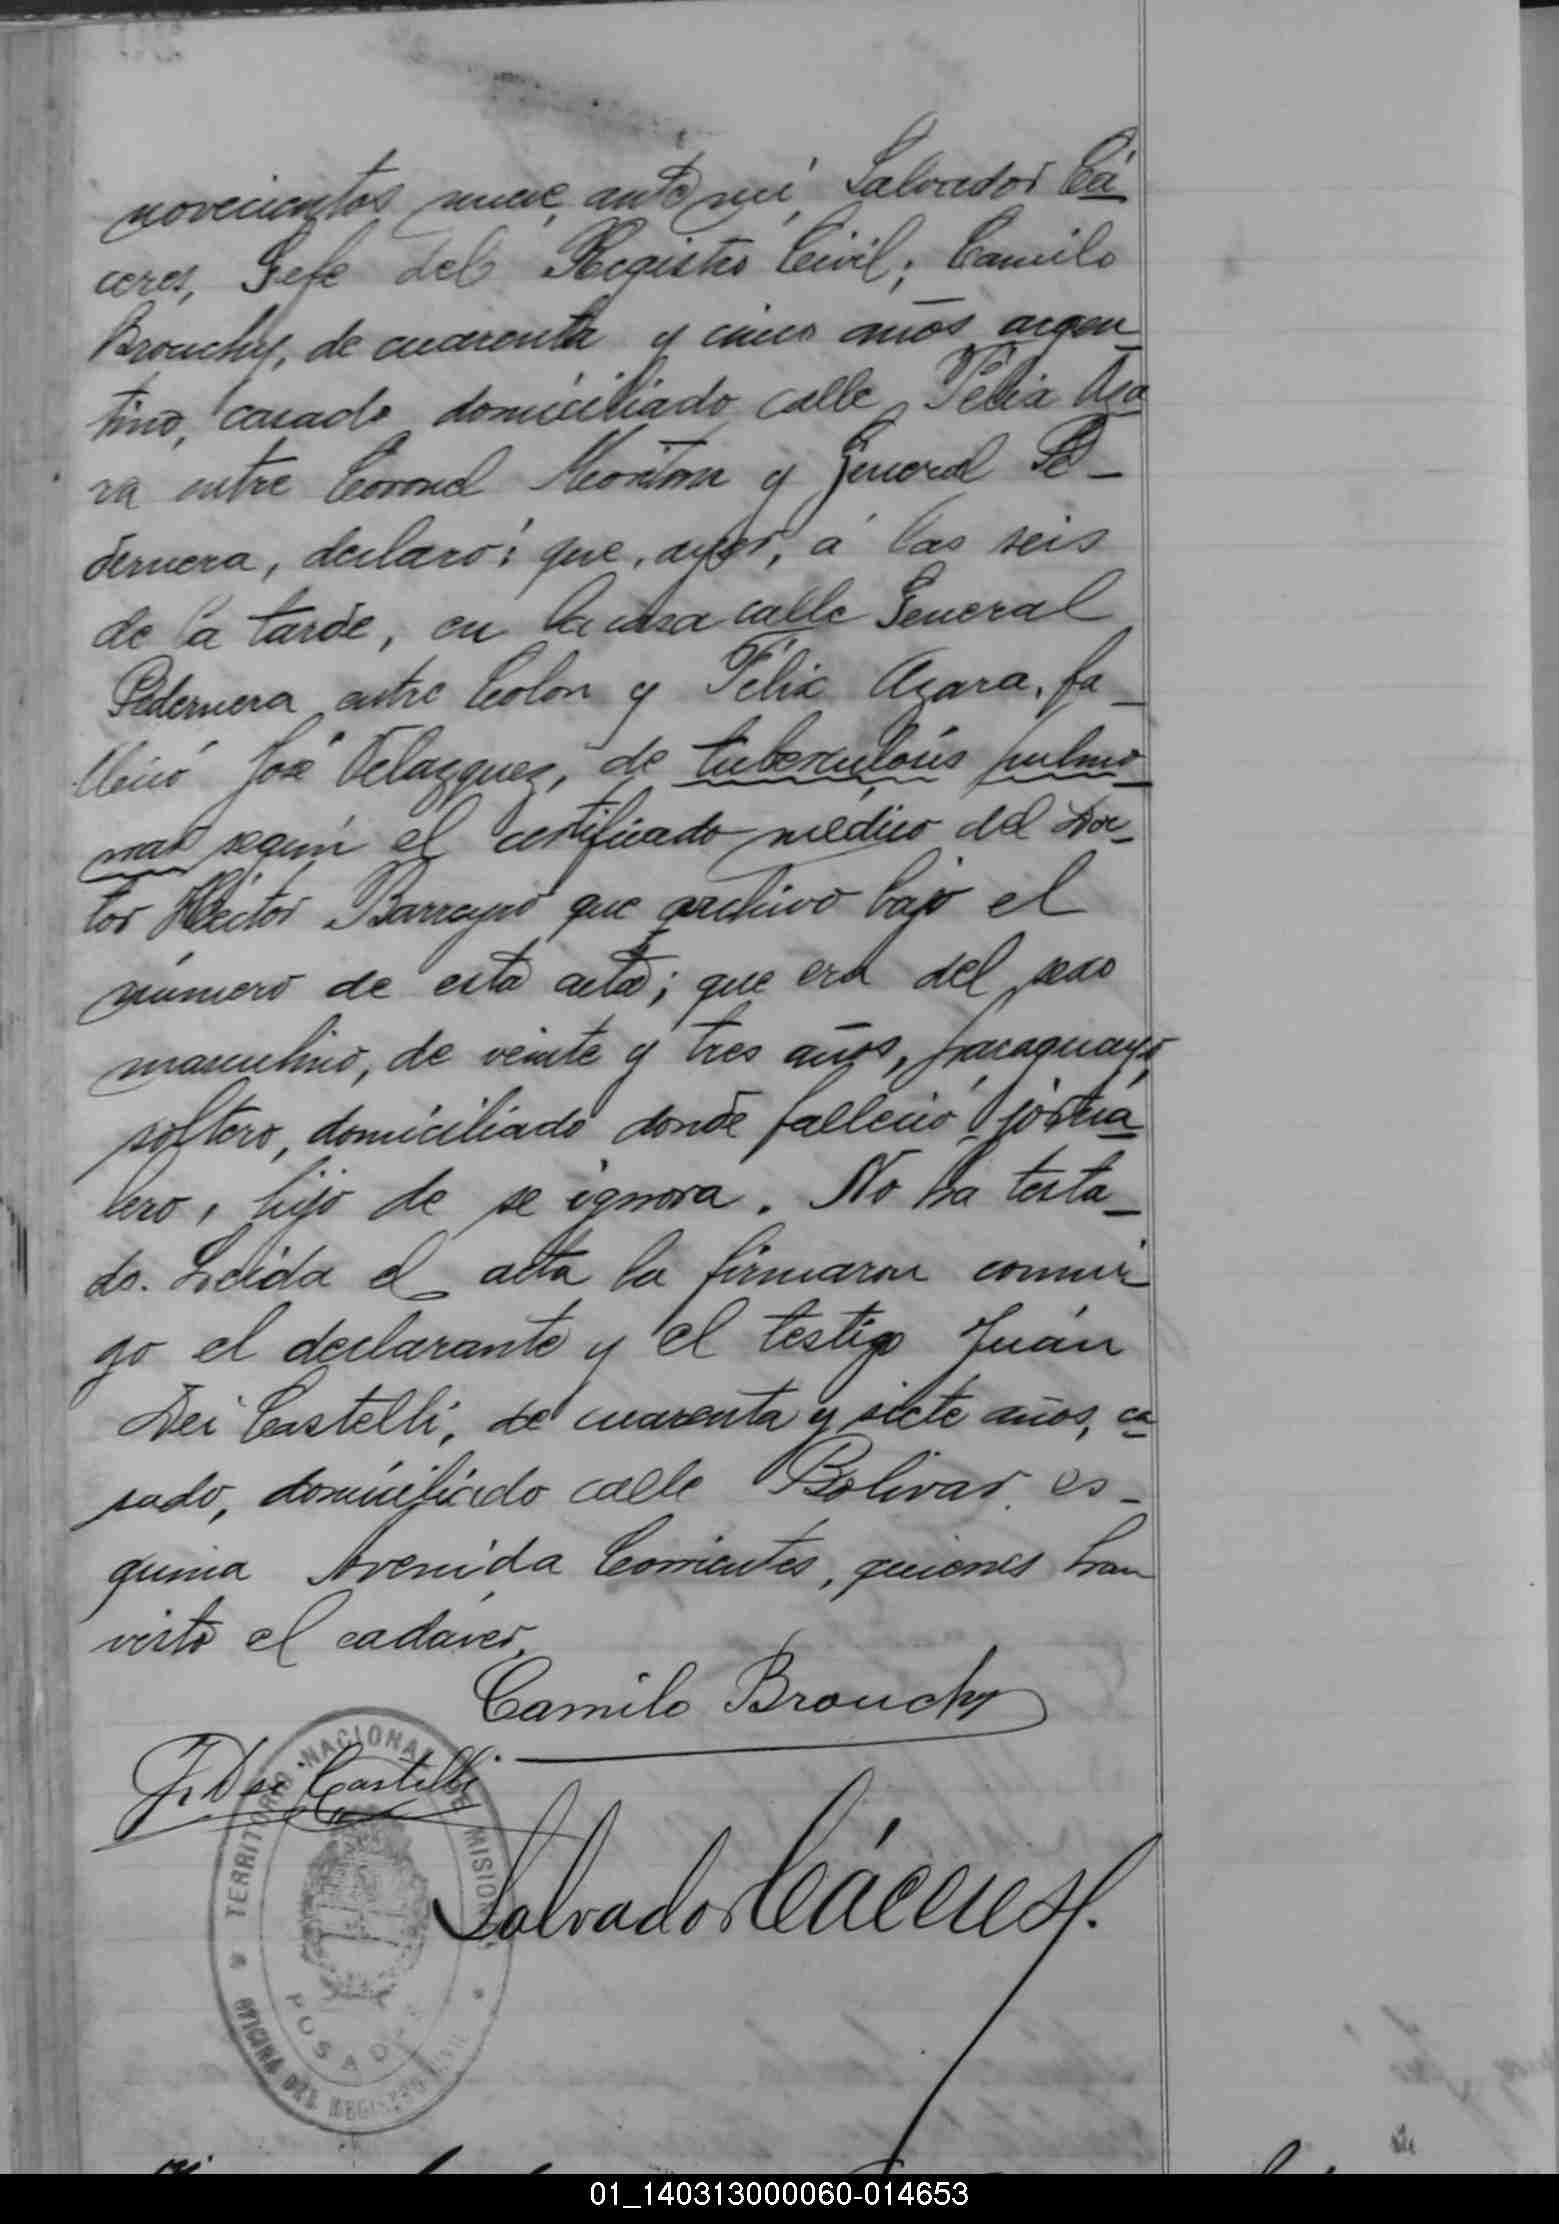 novecientos nueve, ante mí, Salvador Cá
ceres, Gefe del Registro Civil; Camilo
Brouchy, de cuarenta y cinco años argen
tino, casado domiciliado calle Félix Aza
ra entre Coronel y General Pe-
dernera, declaró: que, ayer, á las seis
de la tarde, en la casa calle General
Pedernera entre Colon y Félix Azara, fa_
lleció José Velazquez, de tuberculósis pulmo
nar según el certificado médico del Doc-
tor Héctor Barreyro que archivo bajo el
número de esta acta; que era del sexo
masculino, de veinte y tres años, paraguayo,
soltero, domiciliado donde falleció, jorna
lero, hijo de se ignora. No ha testa_
do. Leida el acta la firmaron conmi
go el declarante y el testigo Juán
Dei Castelli, de cuarenta y siete años, ca
sado, domiciliado calle Bolivar es-
quina Avenida Corrientes, quienes han
visto el cadáver.
Camilo Brouchy
J. Dei Castelli
Salvador Cáceres
TERRITORIO NACIONAL DE MISIONES
POSADAS
OFICINA DEL REGISTRO CIVIL
01_140313000060-014653